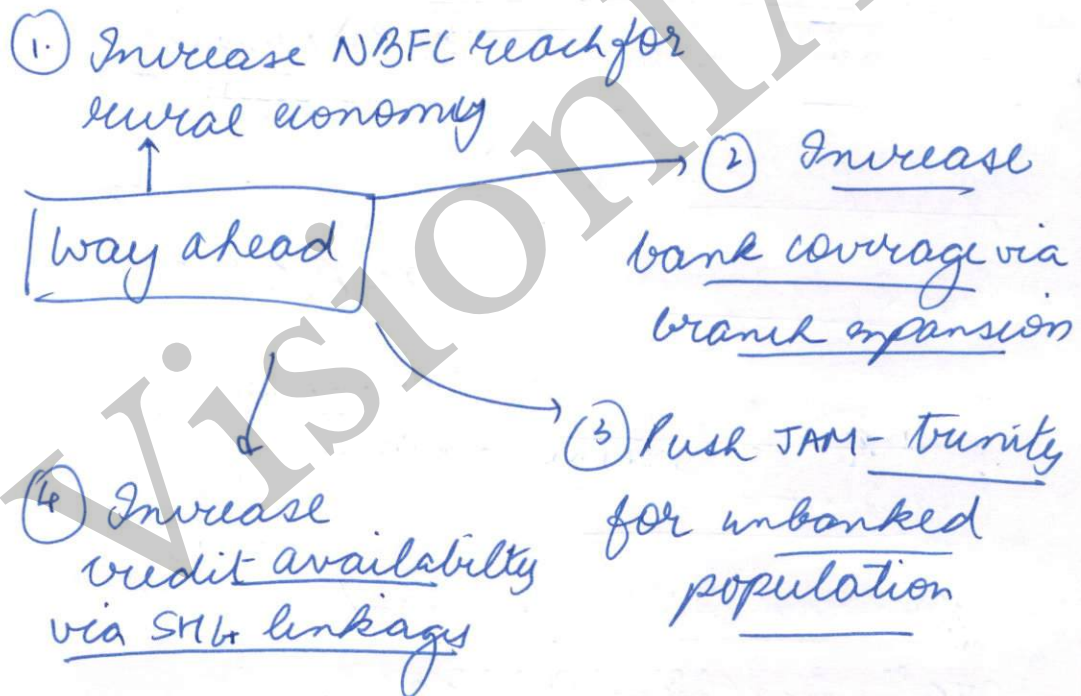 1. Increase NBFC reach for
rural economy
way ahead
2 Increase
bank coverage via
branch expansion
3 Push JAM- trinity
for unbanked
population
4 Increase
credit availabilty
via SHG linkages
Vision